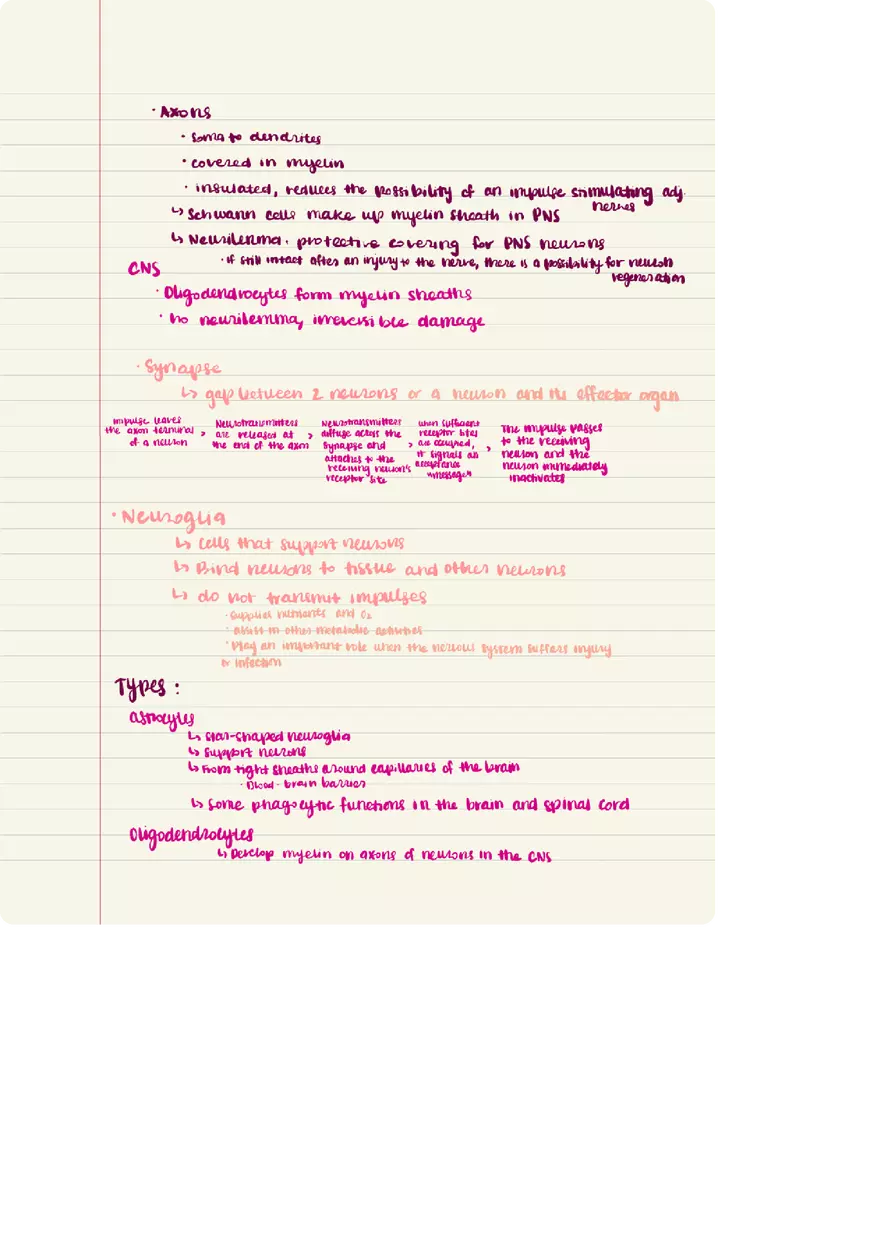 · Axons
· Soma to dendrites
· covered in myelin
· insulated, reduces the possibility of an impulse stimulating adj.
nerves
↳ Schwann cells make up myelin sheath in PNS
↳ Neurilemma. protective covering for PNS neurons
· If still intact after an injury to the nerve, there is a possibility for neuron
regeneration
CNS
· Oligodendrocytes form myelin sheaths
· no neurilemma, irreversible damage
· Synapse
↳ gap between 2 neurons or a neuron and its effector organ
impulse leaves
the axon terminal
of a neuron
>
Neurotransmitters
are released at
the end of the axon
>
Neurotransmitters
diffuse across the
synapse and
attaches to the
receiving neuron's
receptor site
>
when sufficient
receptor sites
are occupied,
it signals an
acceptance
"message"
>
The impulse passes
to the receiving
neuron and the
neuron immediately
inactivates
· Neuroglia
↳ Cells that support neurons
↳ Bind neurons to tissue and other neurons
↳ do not transmit impulses
· Supplies nutrients and O₂
· assist in other metabolic activities
· Play an important role when the nervous system suffers injury
or infection
Types :
astrocytes
↳ star-shaped neuroglia
↳ Support neurons
↳ From tight sheaths around capillaries of the brain
· Blood-brain barrier
↳ Some phagocytic functions in the brain and spinal cord
Oligodendrocytes
↳ Develop myelin on axons of neurons in the CNS